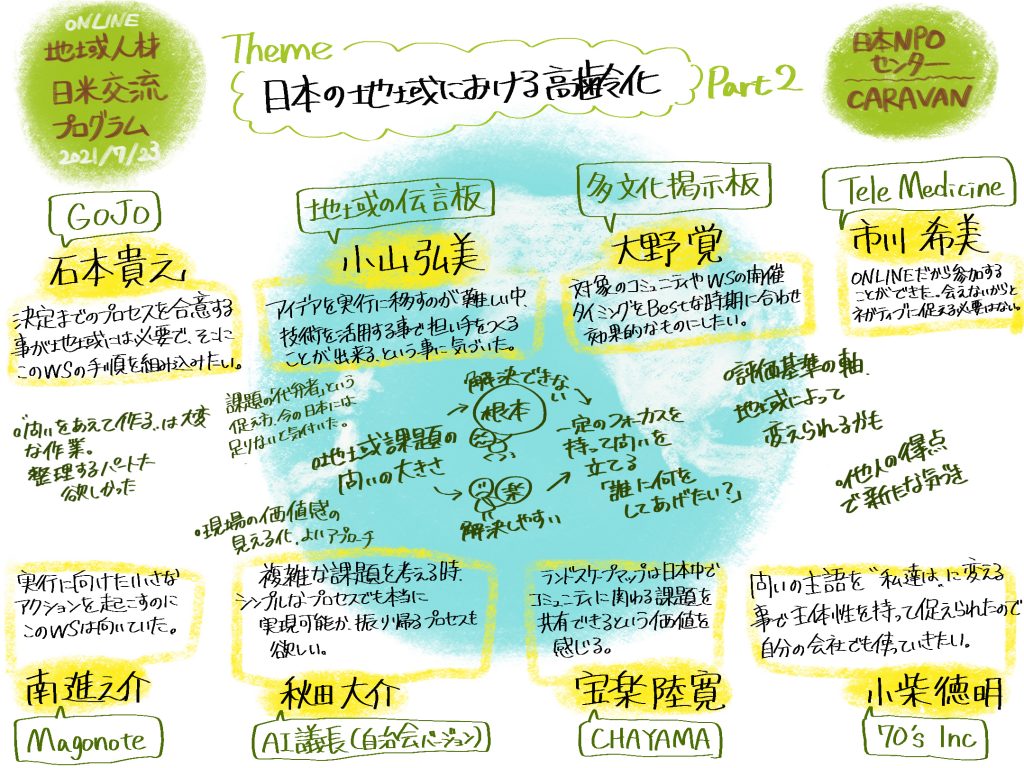 ONLINE
地域人材
日米交流
プログラム
2021/7/23
Theme
日本の地域における高齢化
Part 2
日本NPO
センター
CARAVAN
GOJO
石本貴之
決定までのプロセスを合意する
事が地域には必要で、そこに
このWSの手順を組み込みたい。
地域の伝言板
小山弘美
アイデアを実行に移すのが難しい中、
技術を活用する事で担い手をつくる
ことが出来る、という事に気づいた。
多文化掲示板
大野覚
対象のコミュニティやWSの開催
タイミングをBestな時期に合わせ
効果的なものにしたい。
Tele Medicine
市川 希美
ONLINEだから参加する
ことができた。会えないからと
ネガティブに捉える必要はない。
"問いをあえて作る"は大変
な作業。
整理するパートた
欲しかった
課題「代弁者」という
捉え方、今の日本には
足りないと気付いた。
地域課題の
問いの大きさ
解決できない
根本
楽
解決しやすい
一定のフォーカスを
持って問いを
立てる
「誰に何を
してあげたい?」
評価基準の軸、
地域によって
変えられるかも
他人の得点
で新たな気づき
現場の価値感の
見える化、よいアプローチ
実行に向けた小さな
アクションを起こすのに
このWSは向いていた。
南進之介
Magonote
複雑な課題を考える時、
シンプルなプロセスでも本当に
実現可能か、振り帰るプロセスも
欲しい。
秋田大介
AI議長(自治会バージョン)
ランドスケープマップは日本中で
コミュニティに関わる課題を
共有できるという価値を
感じる。
宝楽陸寛
CHAYAMA
問いの主語を"私達は"に変える
事で主体性を持って捉えられたので
自分の会社でも使っていきたい。
小柴徳明
70's Inc